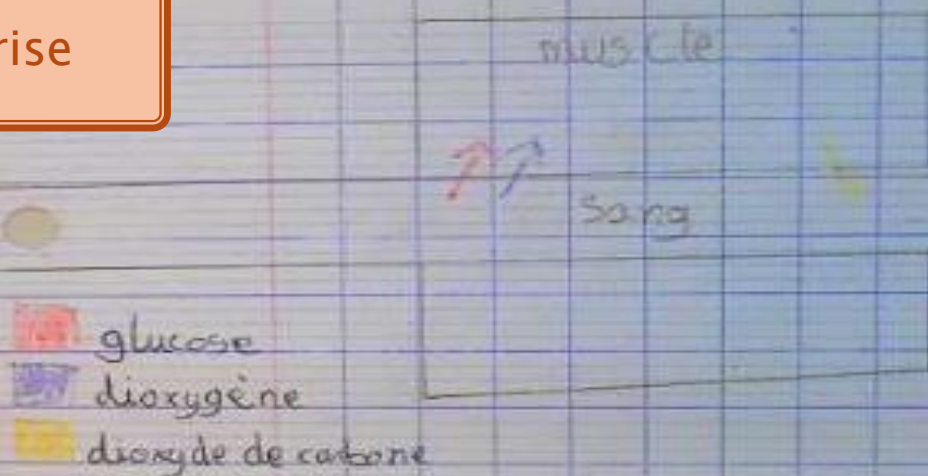 rise
muscle
sang
glucose
dioxygène
dioxyde de carbone